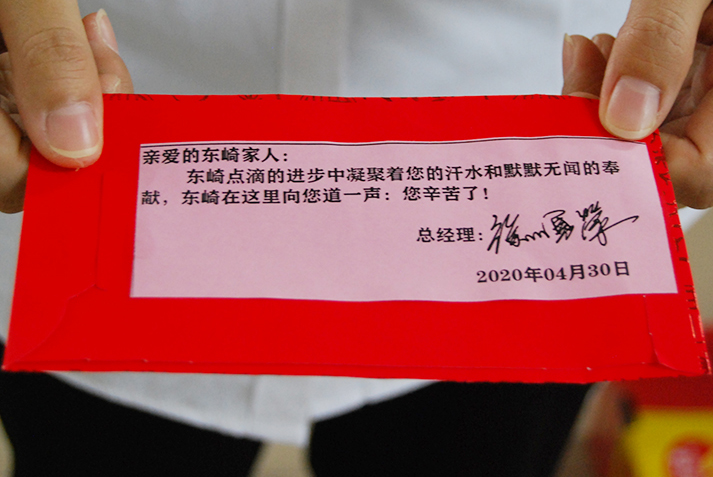 亲爱的东崎家人：
东崎点滴的进步中凝聚着您的汗水和默默无闻的奉
献，东崎在这里向您道一声：您辛苦了！
总经理：
2020年04月30日